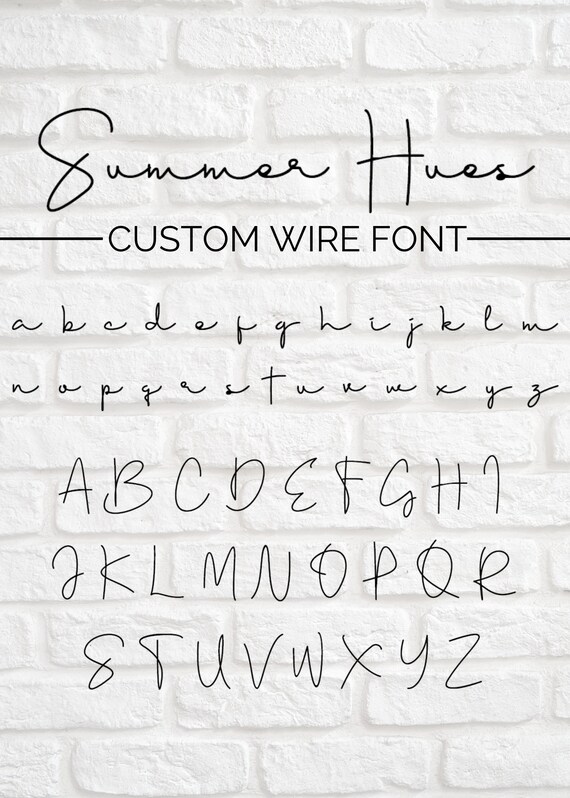 Summer Hues
CUSTOM WIRE FONT
a b c d e f g h i j k l m
n o p q r s t u v w x y z
A B C D E F G H I
J K L M N O P Q R
S T U V W X Y Z